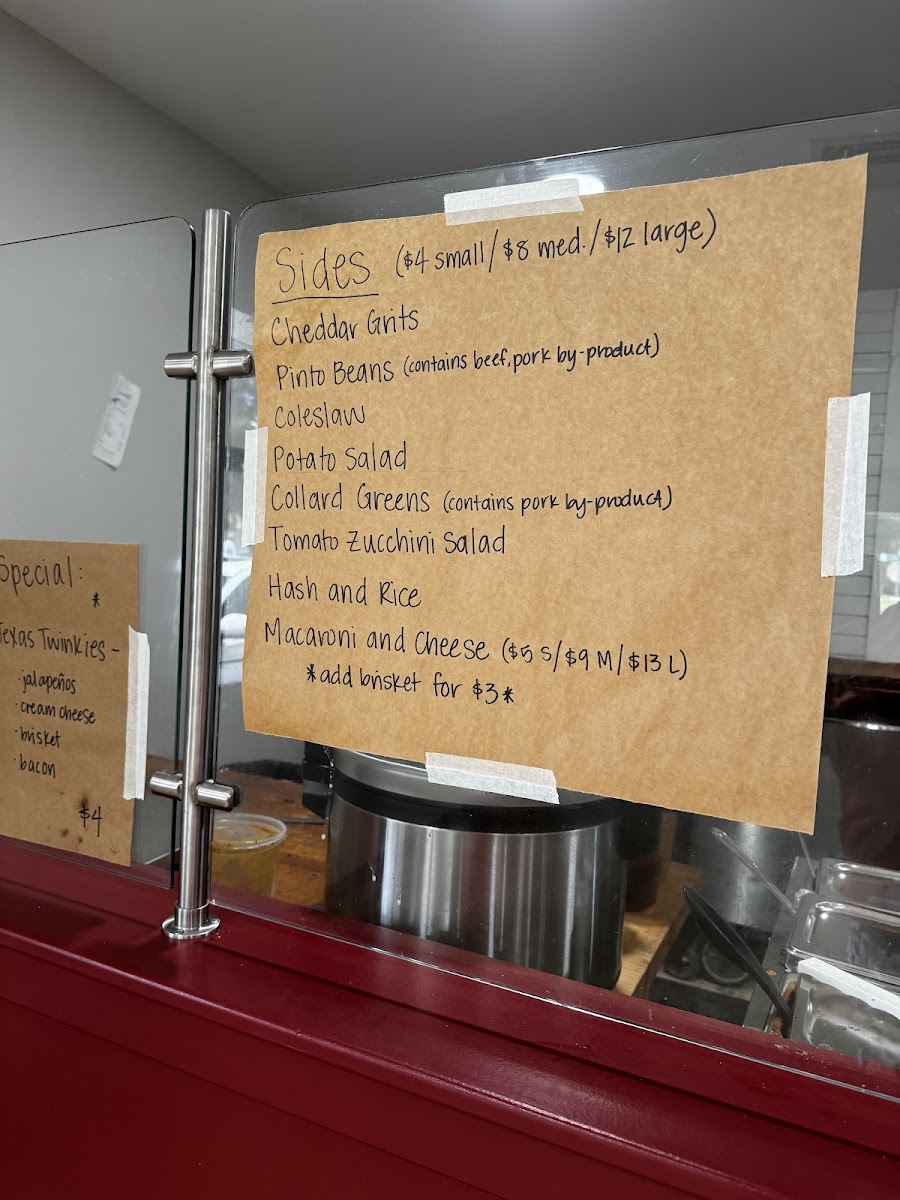 Sides ($4 small/$8 med./$12 large)
Cheddar Grits
Pinto Beans (contains beef, pork by-product)
Coleslaw
Potato Salad
Collard Greens (contains pork by-product)
Tomato Zucchini Salad
Hash and Rice
Macaroni and Cheese ($5 S/$9 M/$13 L)
*add brisket for $3*
Special:
*
Texas Twinkies -
·jalapeños
·cream cheese
·brisket
·bacon
$4